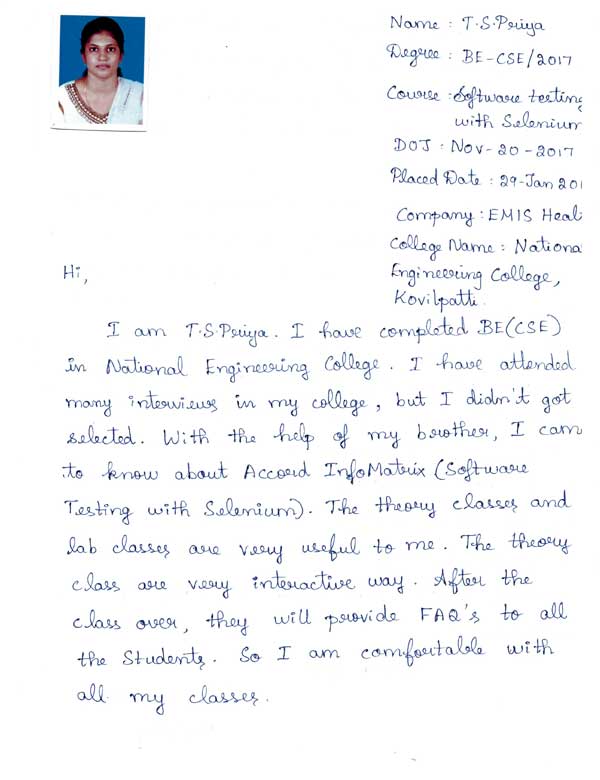 Name : T.S.Priya
Degree : BE-CSE/2017
Course : Software testing
with Selenium
DOJ : Nov-20-2017
Placed Date : 29-Jan 201
Company : EMIS Heal
College Name : Nationa
Engineering College,
Kovilpatti.
Hi,
I am T.S.Priya. I have completed BE(CSE)
in National Engineering College. I have attended
many interviews in my college, but I didn't got
selected. With the help of my brother, I cam
to know about Accord InfoMatrix (Software
Testing with Selenium). The theory classes and
lab classes are very useful to me. The theory
class are very interactive way. After the
class over, they will provide FAQ's to all
the Students. So I am comfortable with
all my classes.